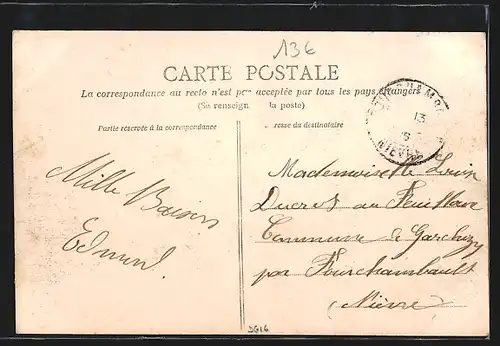 136
CARTE POSTALE
La correspondance au recto n'est pas acceptée par tous les pays étrangers
(Se renseign la poste)
Partie réservée à la correspondance
resse du destinataire
13
NIÈVRE
Mille Baisers
Edmond.
Mademoiselle Louise
Ducros au
Commune de Garchizy
par Fourchambault
(Nièvre)
DG16